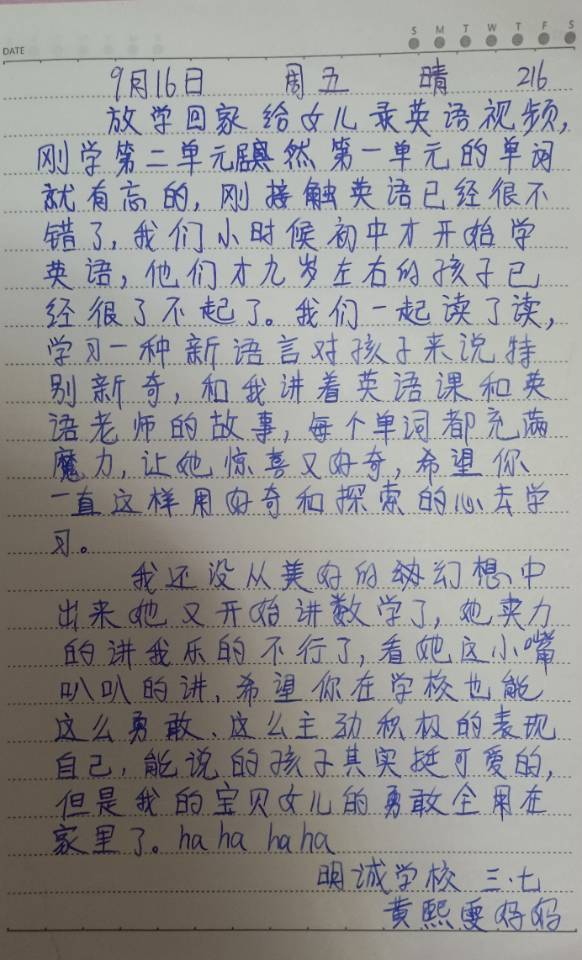 DATE
S M T W T F S
9月16日 周五 晴 216
放学回家给女儿录英语视频,
刚学第二单元居然第一单元的单词
就有忘的,刚接触英语已经很不
错了,我们小时候初中才开始学
英语,他们才九岁左右的孩子已
经很了不起了。我们一起读了读,
学习一种新语言对孩子来说特
别新奇,和我讲着英语课和英
语老师的故事,每个单词都充满
魔力,让她惊喜又好奇,希望你
一直这样用好奇和探索的心去学
习。
我还没从美好的幻想中
出来她又开始讲数学了,她卖力
的讲我乐的不行了,看她这小嘴
叭叭的讲,希望你在学校也能
这么勇敢、这么主动积极的表现
自己,能说的孩子其实挺可爱的,
但是我的宝贝女儿的勇敢全用在
家里了。ha ha ha ha
明诚学校 三·七
黄熙雯妈妈